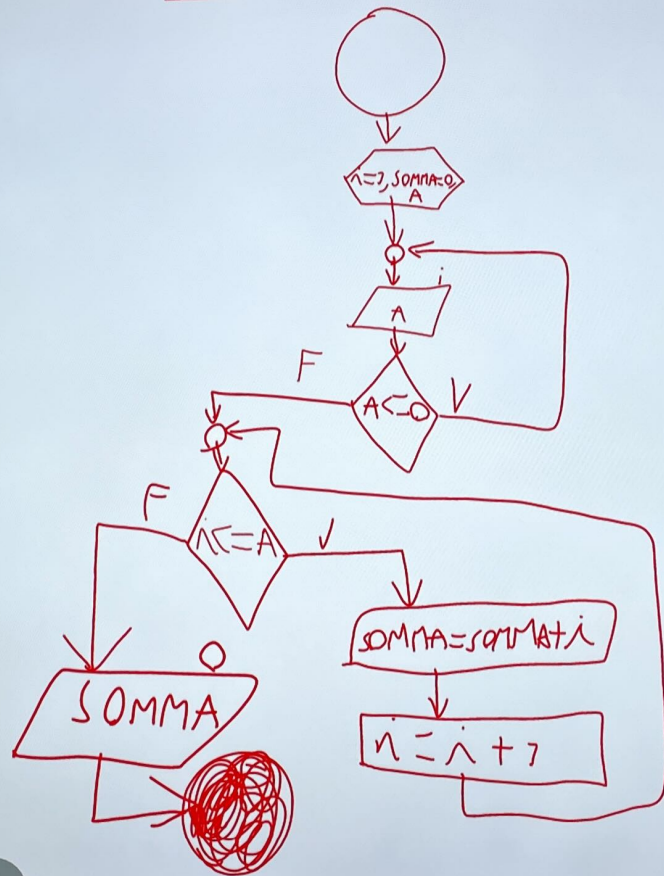 i=1, SOMMA=0,
A
i
A
F
A<=0
V
F
i<=A
V
SOMMA=SOMMA+i
O
SOMMA
i=i+1